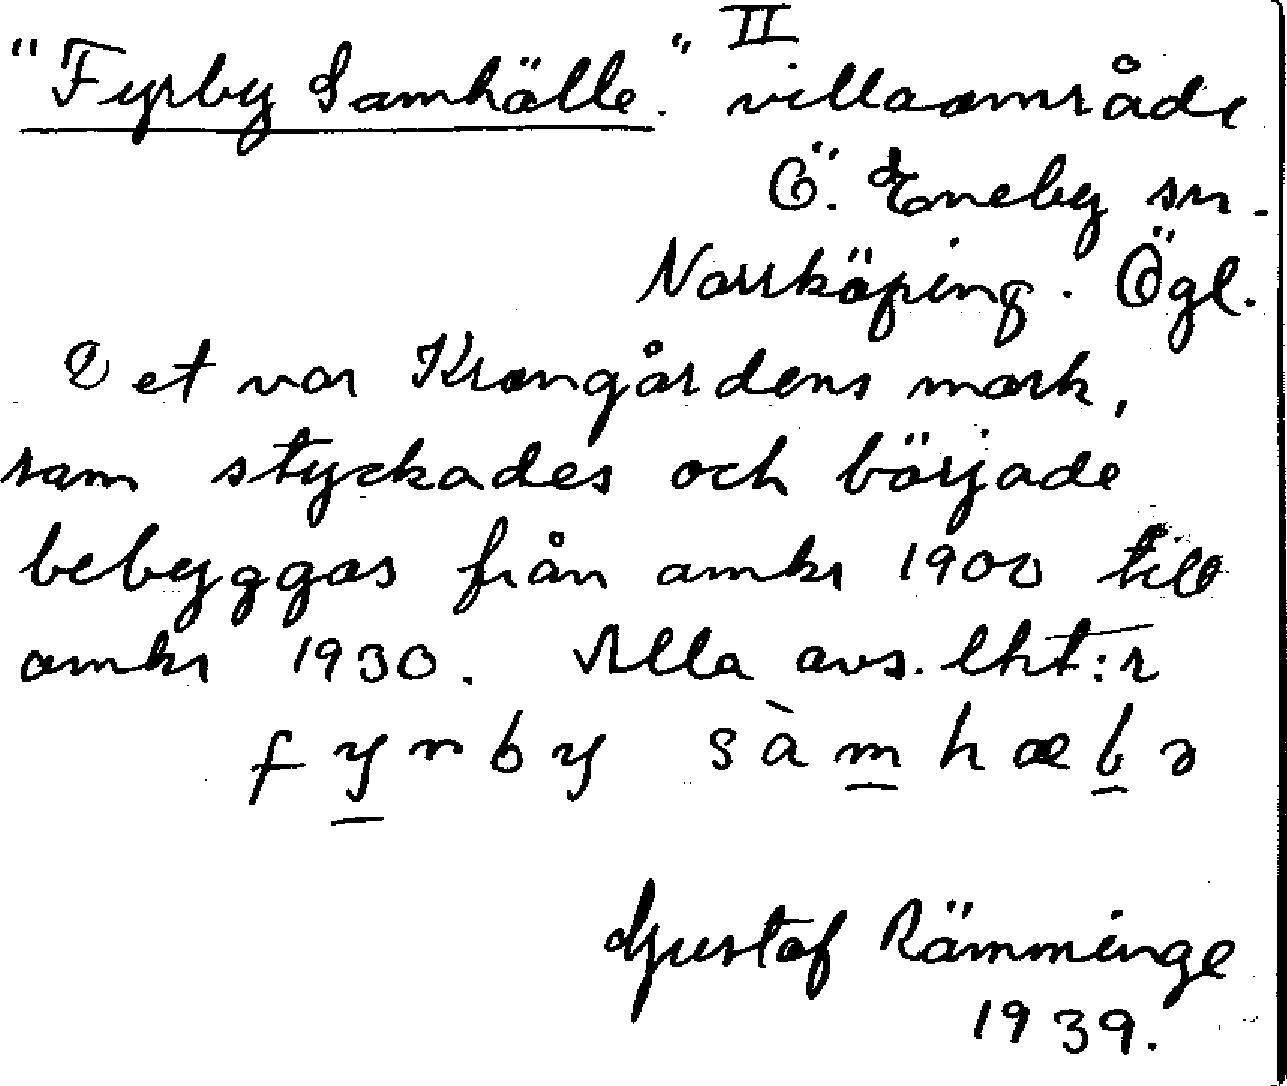 "Fyrby Samhälle." II villaområde
Ö. Eneby sn.
Norrköping. Ögl.
Det var Krongårdens mark,
som styckades och började
bebyggas från omkr 1900 till
omkr 1930. Alla avs. lht:r
fyrby sàmhælə
Gustaf Rämminge
1939.